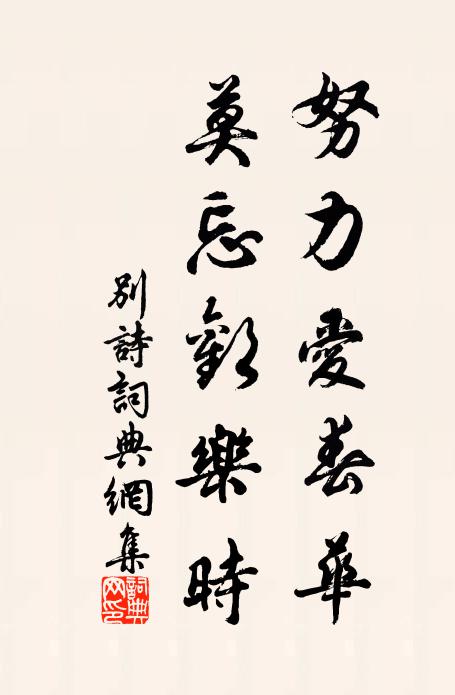 努力愛春華
莫忘歡樂時
別詩詞典網集
詞典网印